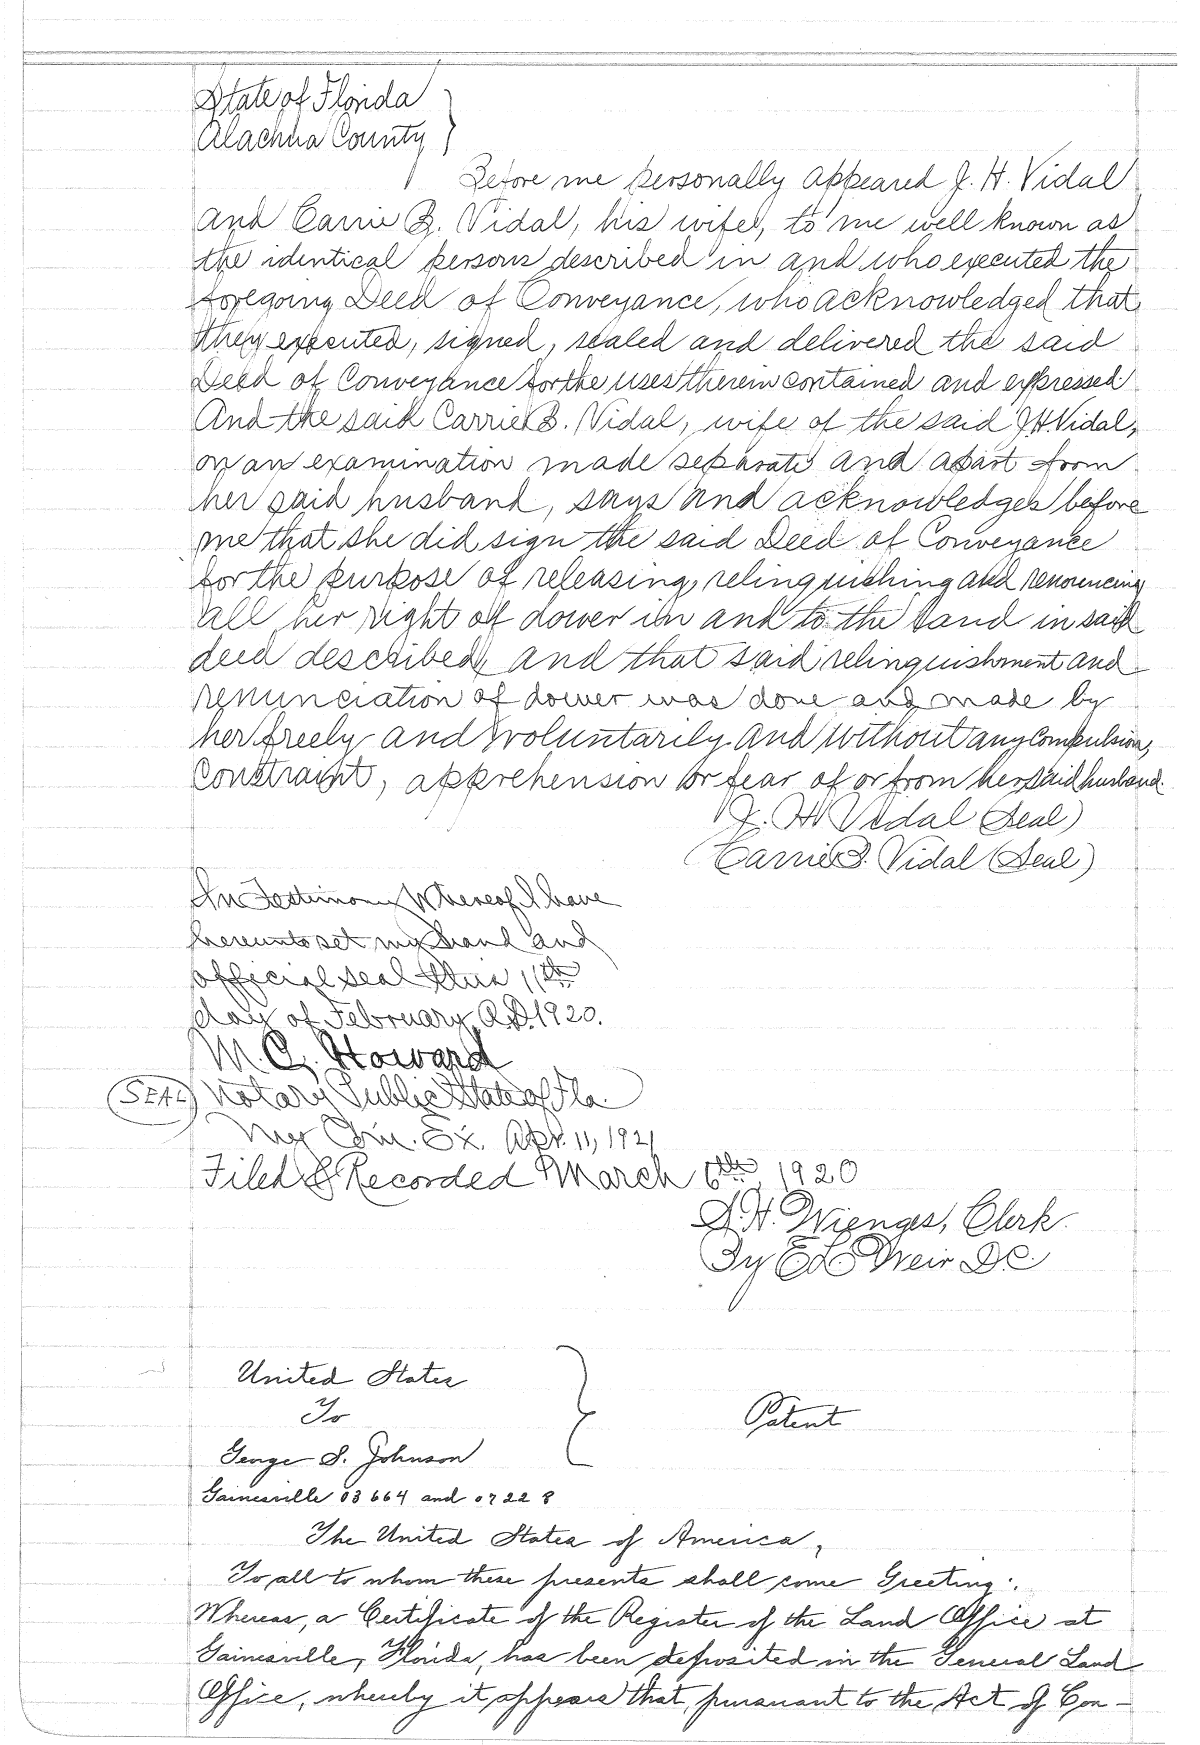 State of Florida
Alachua County
Before me personally appeared J. H. Vidal
and Carrie B. Vidal, his wife, to me well known as
the identical persons described in and who executed the
foregoing Deed of Conveyance, who acknowledged that
they executed, signed, sealed and delivered the said
Deed of Conveyance for the uses therein contained and expressed
And the said Carrie B. Vidal, wife of the said J.H. Vidal,
on an examination made separate and apart from
her said husband, says and acknowledges before
me that she did sign the said Deed of Conveyance
for the purpose of releasing, relinquishing and renouncing
all her right of dower in and to the land in said
deed described, and that said relinquishment and
renunciation of dower was done and made by
her freely and voluntarily and without any compulsion,
constraint, apprehension or fear of or from her said husband.
J. H. Vidal (Seal)
Carrie B. Vidal (Seal)
In Testimony Whereof I have
hereunto set my hand and
official seal this 11th
day of February, A.D. 1920.
M. C. Howard
(SEAL) Notary Public State of Fla.
My Com. Ex. Apr. 11, 1921
Filed & Recorded March 6th, 1920
S. H. Wienges, Clerk.
By E L Weir D.C.
United States
To
George S. Johnson
Patent
Gainesville 03664 and 07228
The United States of America,
To all to whom these presents shall come Greeting:
Whereas, a Certificate of the Register of the Land Office at
Gainesville, Florida, has been deposited in the General Land
Office, whereby it appears that, pursuant to the Act of Con-